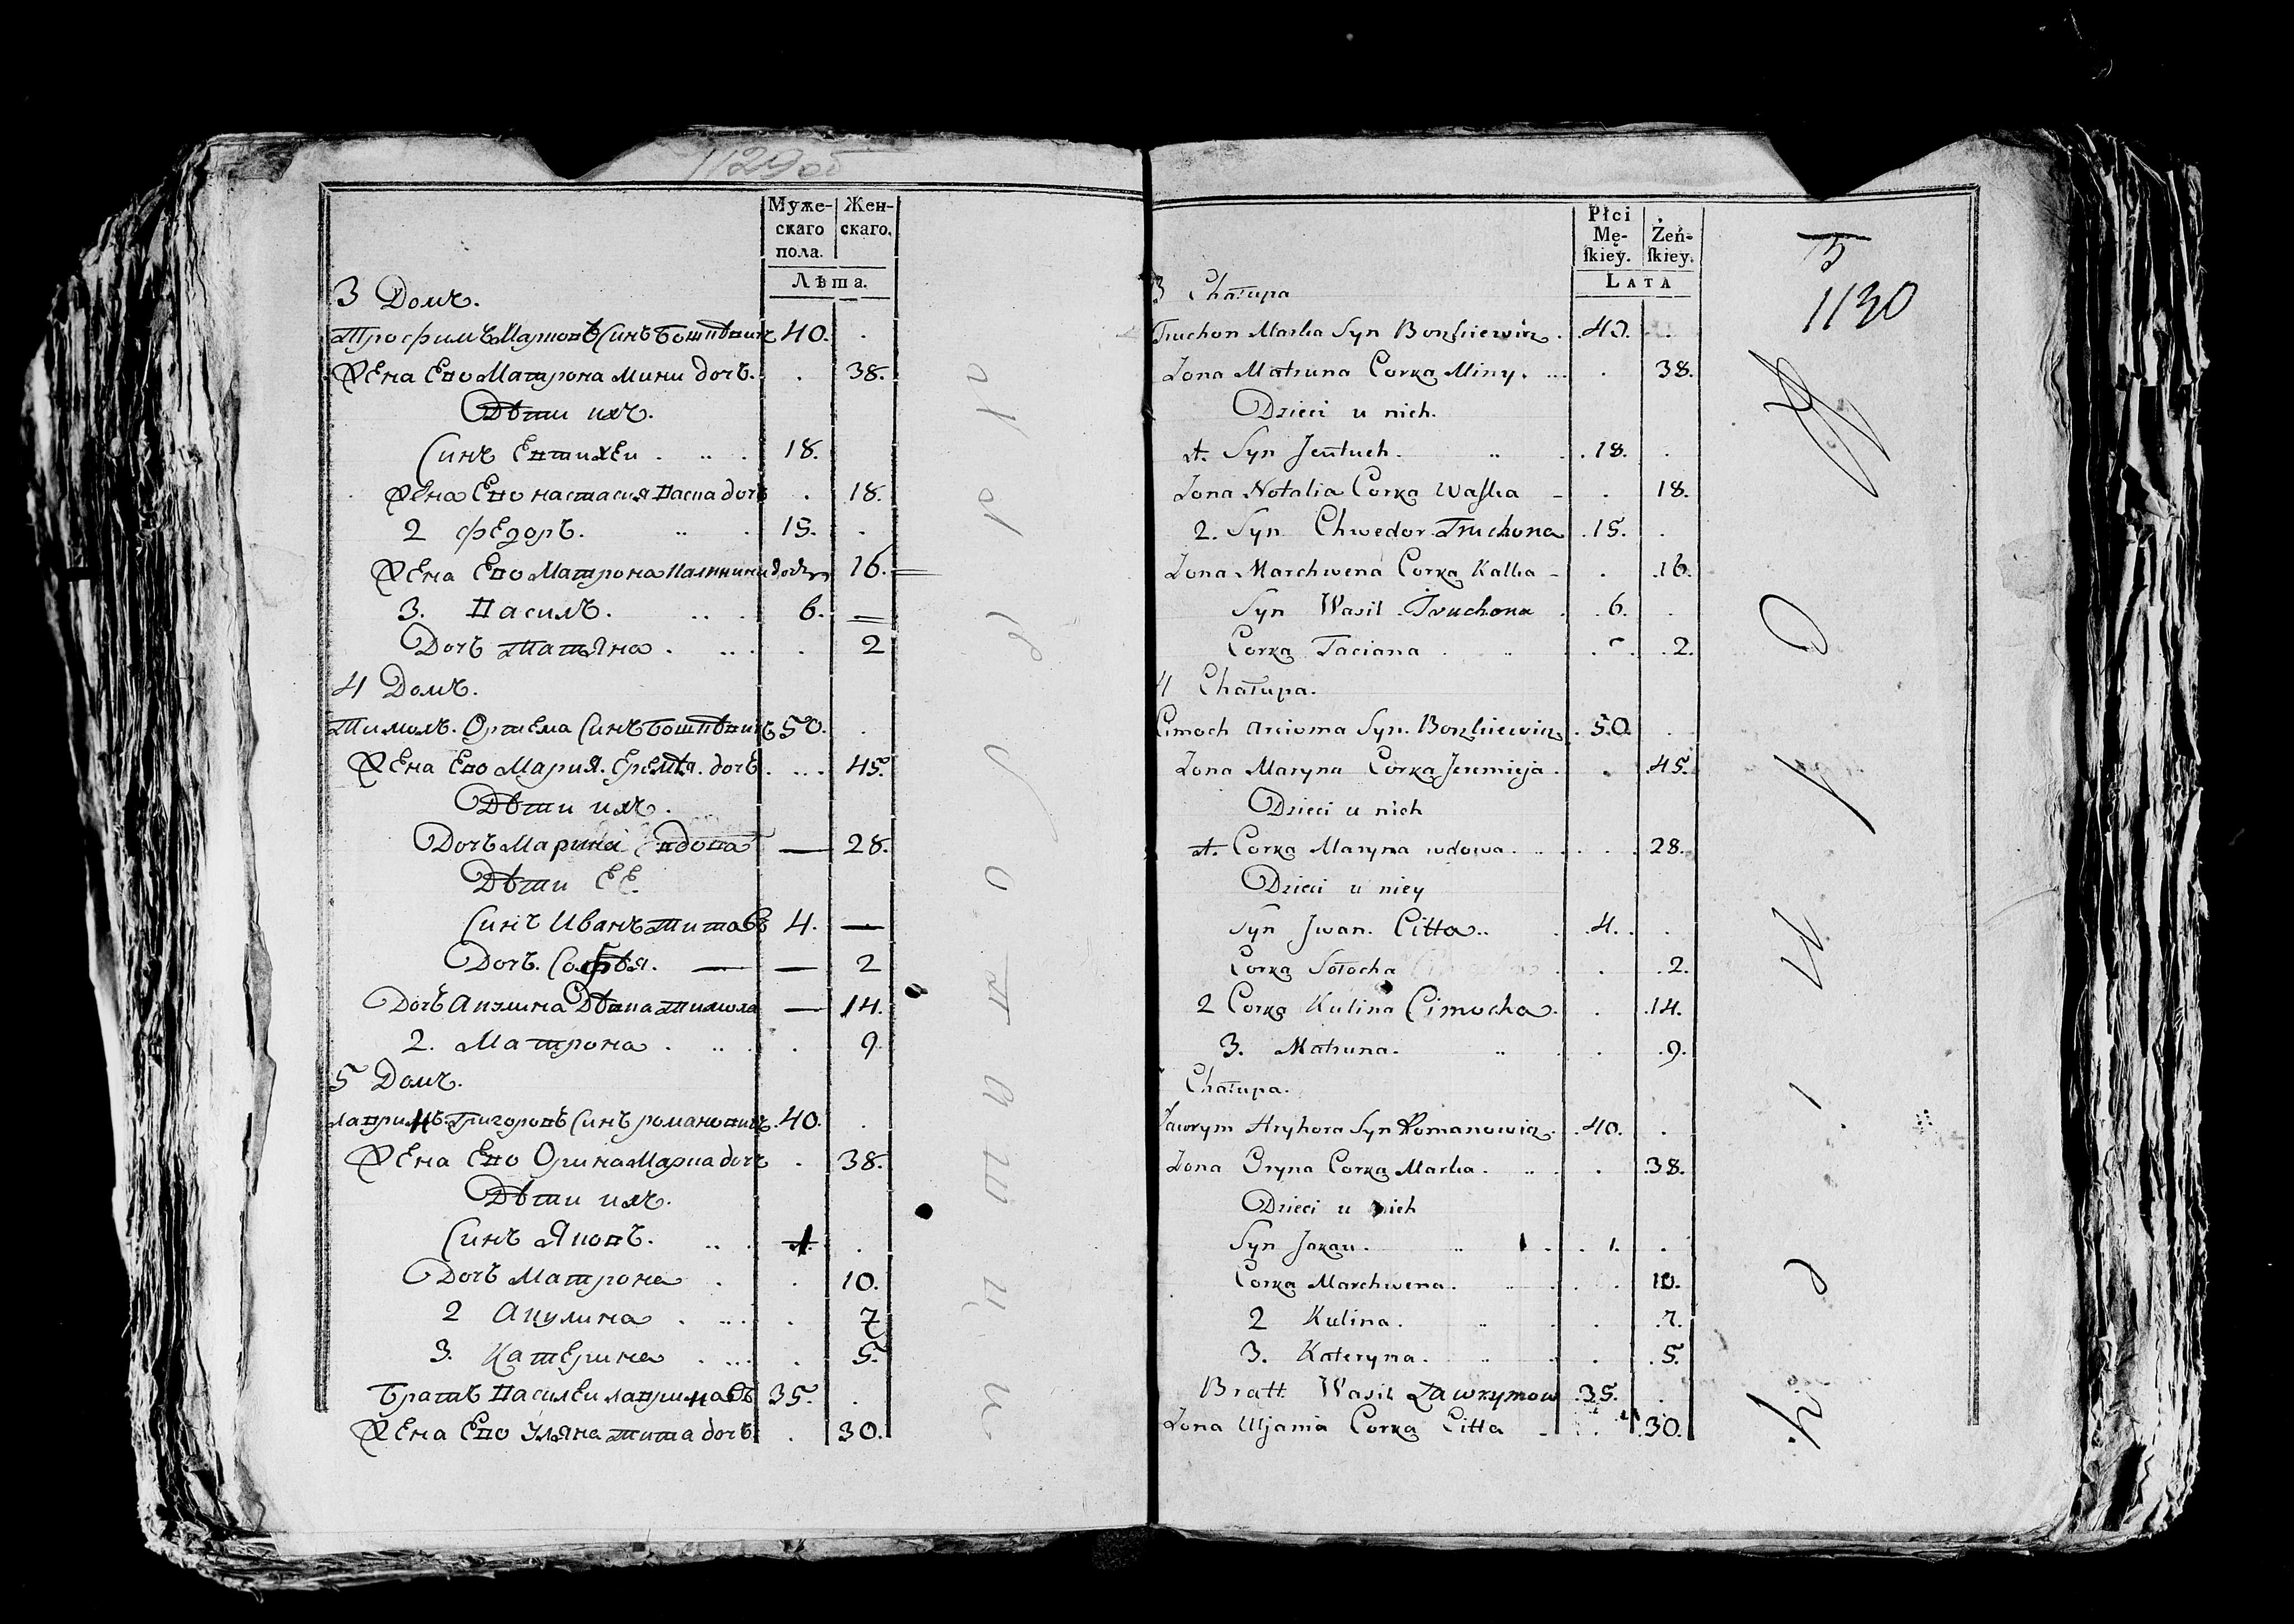 1129об
Муже-
скаго
пола.
Жен-
скаго.
Лѣта.
3 Домъ.
Трофимъ Марковъ Синъ Бошкѣвичъ 40.
Жена Его Матрона Мини дочъ. 38.
Дѣти ихъ.
Синъ Евтихеи 18.
Жена Его настасия Васка дочъ 18.
2 Федоръ. 15.
Жена Его Матрона Калинини дочъ 16.
3. Василъ. 6.
Дочъ Татяна 2
4 Домъ.
Тимохъ. Ортема Синъ Бошкѣвичъ 50.
Жена Его Мария. Еремѣя. дочъ 45.
Дѣти ихъ.
Дочъ Марина вдова — 28.
Дѣти ЕЕ.
Синъ Иванъ Титавъ 4. —
Дочъ. Софѣя. — — 2
Дочъ Акулина Дѣвка Тимоха — 14.
2. Матрона 9
5 Домъ.
лавримъ. Григоровъ Синъ романовичъ 40.
Жена Его Орина Марка дочъ 38.
Дѣти ихъ.
Синъ Яковъ. 1.
Дочъ Матрона 10.
2 Акулина 7
3. Катерина 5.
Братъ Василеи лавримавъ 35.
Жена Его Уляна тита дочъ 30.
Płci
Mę-
ſkiey.
Żeń-
ſkiey.
LATA
1130
3 Chałupa
Truchon Marka Syn Boszkiewicz 40.
Żona Matruna Corka Miny. 38.
Dzieci u nich.
1. Syn Jeutuch. 18.
Żona Notalia Corka Waſka 18.
2. Syn Chwedor Truchona 15.
Żona Marchwena Corka Kalka 16.
Syn Wasil Truchona 6.
Corka Taciana 2.
4 Chałupa.
Cimoch Arcioma Syn. Boszkiewicz 50.
Żona Maryna Corka Jeremieja 45.
Dzieci u nich
1. Corka Maryna wdowa 28.
Dzieci u niey
Syn Jwan. Citta 4.
Corka Sołocha 2.
2 Corka Kulina Cimocha. 14.
3. Matruna. 9.
Chałupa.
Ławrym Hryhora Syn Romanowicz. 40.
Żona Oryna Corka Marka. 38.
Dzieci u nich
Syn Jakau. 1.
Corka Marchwena. 10.
2 Kulina. 7.
3. Kateryna. 5.
Bratt Wasil Ławrymow 35.
Żona Uljania Corka Citta 30.